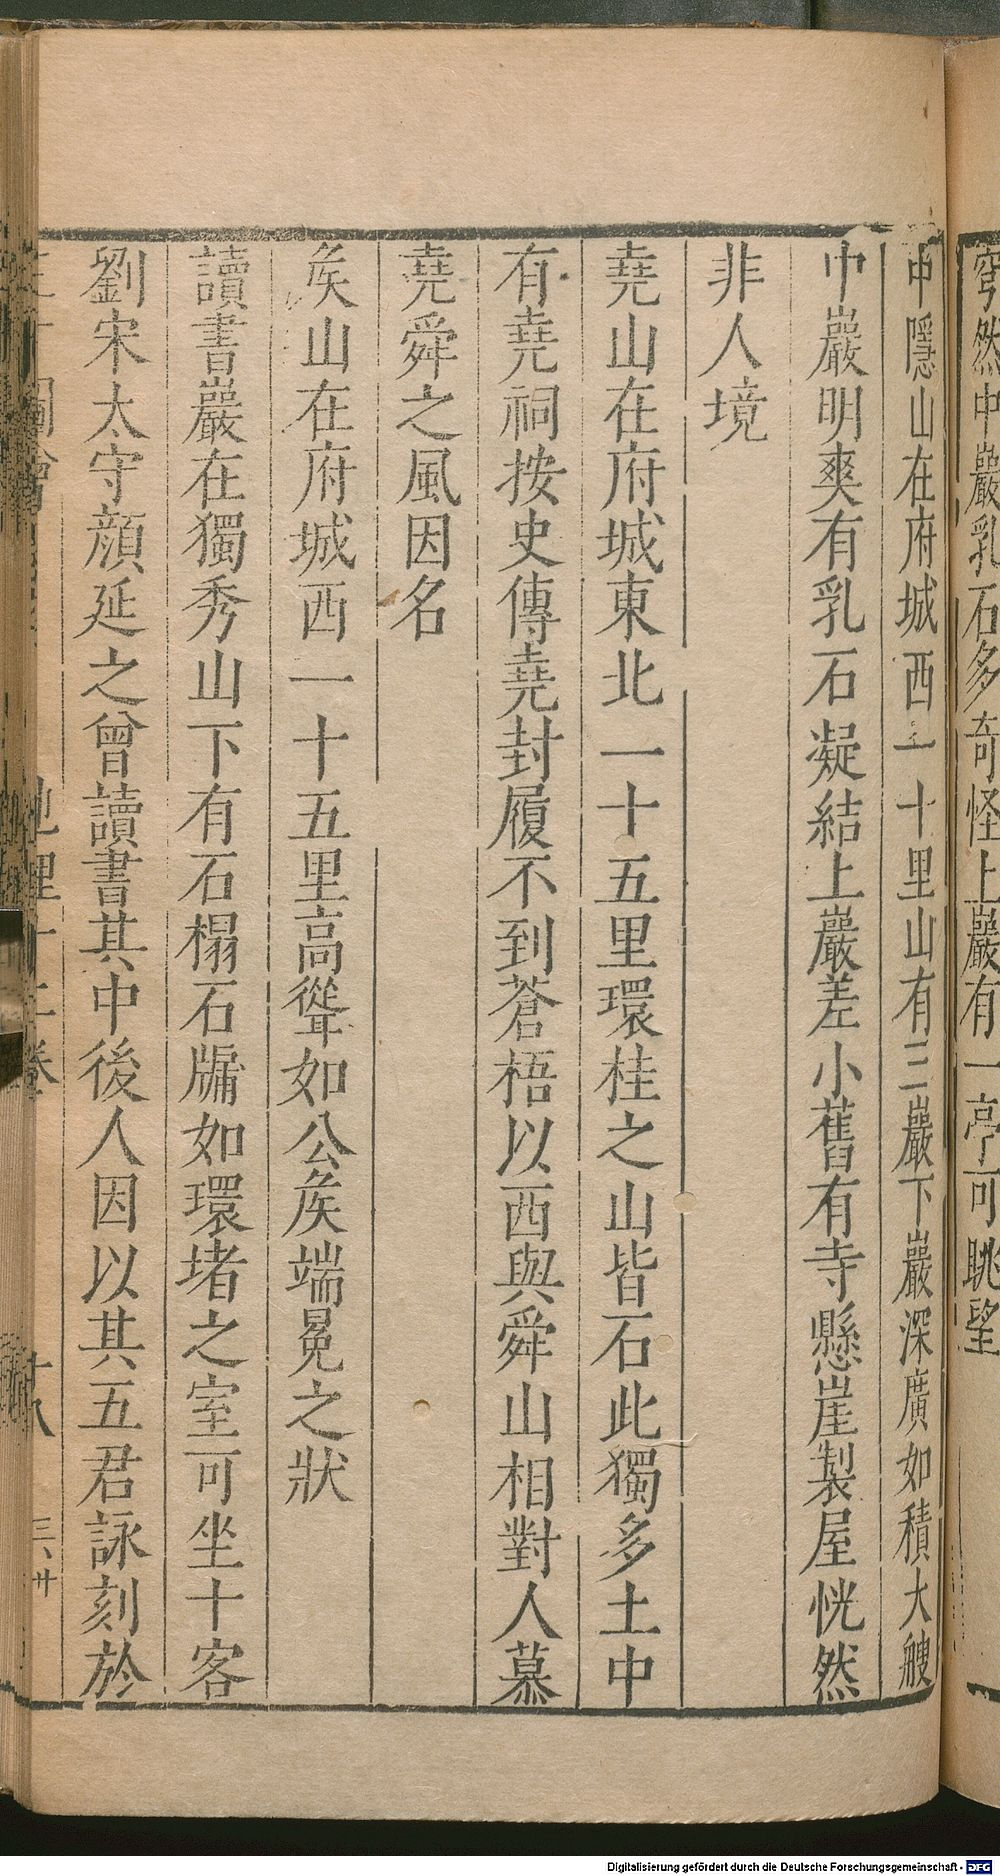 穹然中巖乳石多奇怪上巖有一亭可眺望
中隱山在府城西一十里山有三巖下巖深廣如積大艘
中巖明爽有乳石凝結上巖差小舊有寺懸崖製屋恍然
非人境
堯山在府城東北一十五里環桂之山皆石此獨多土中
有堯祠按史傳堯封履不到蒼梧以西與舜山相對人慕
堯舜之風因名
矦山在府城西一十五里高聳如公矦端冕之狀
讀書巖在獨秀山下有石榻石牖如環堵之室可坐十客
劉宋太守顏延之曾讀書其中後人因以其五君詠刻於
圖會
地理十二卷
十八
Digitalisierung gefördert durch die Deutsche Forschungsgemeinschaft - DFG